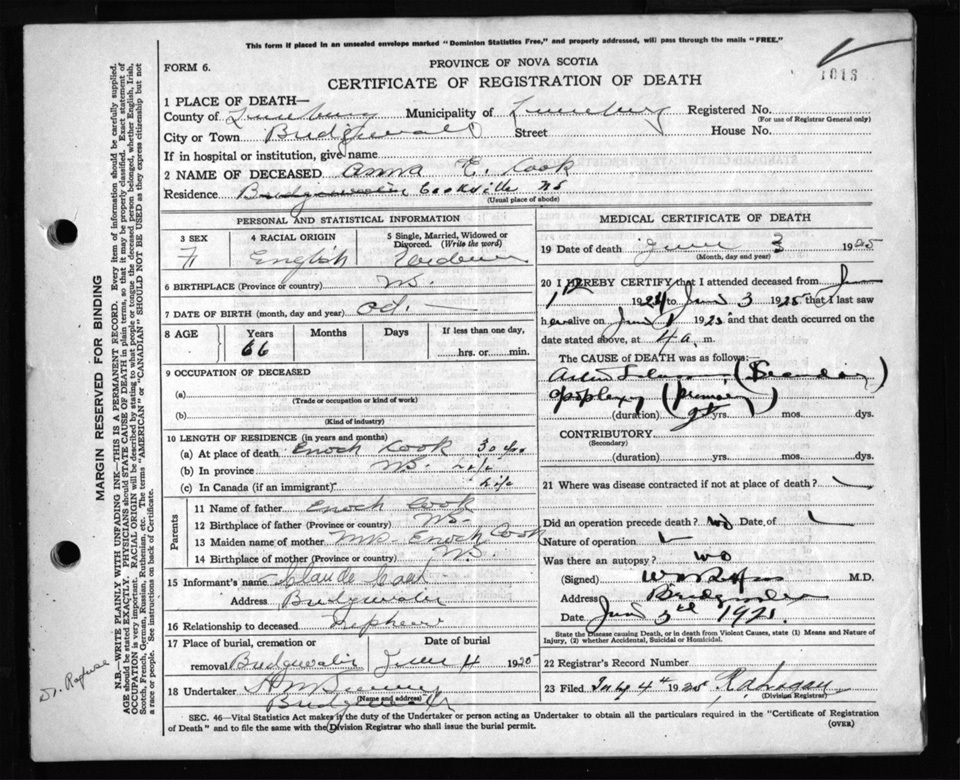 This form if placed in an unsealed envelope marked "Dominion Statistics Free," and properly addressed, will pass through the mails "FREE."
FORM 6.
PROVINCE OF NOVA SCOTIA
CERTIFICATE OF REGISTRATION OF DEATH
1013
1 PLACE OF DEATH—
County of Lunenburg Municipality of Lunenburg Registered No.
(For use of Registrar General only)
City or Town Street House No.
If in hospital or institution, give name
2 NAME OF DECEASED Anna E. Cook
Residence Bridgewater Cookville NS
(Usual place of abode)
PERSONAL AND STATISTICAL INFORMATION
3 SEX F
4 RACIAL ORIGIN English
5 Single, Married, Widowed or Divorced. (Write the word)
6 BIRTHPLACE (Province or Country) NS.
7 DATE OF BIRTH (month, day and year)
8 AGE Years 66 Months Days If less than one day, hrs. or min.
9 OCCUPATION OF DECEASED
(a)
(Trade or occupation or kind of work)
(b)
(Kind of industry)
10 LENGTH OF RESIDENCE (in years and months)
(a) At place of death Enoch Cook 30 yrs
(b) In province NS.
(c) In Canada (if an immigrant)
Parents
11 Name of father Enoch Cook
12 Birthplace of father (Province or country) NS.
13 Maiden name of mother Mrs. Enoch Cook
14 Birthplace of mother (Province or country) NS.
15 Informant's name Claude Cook
Address Bridgewater
16 Relationship to deceased Nephew
17 Place of burial, cremation or removal Bridgewater Date of burial June 4 1925
18 Undertaker
(Name and address)
MEDICAL CERTIFICATE OF DEATH
19 Date of death June 3 1925
(Month, day and year)
20 I HEREBY CERTIFY that I attended deceased from June
1925 to June 3 1925 that I last saw
h er alive on June 1 1925 and that death occurred on the
date stated above, at 4 a. m.
The CAUSE OF DEATH was as follows:
(Secondary)
Apoplexy (Primary)
(duration) yrs. mos. dys.
CONTRIBUTORY
(Secondary)
(duration) yrs. mos. dys.
21 Where was disease contracted if not at place of death?
Did an operation precede death? No Date of
Nature of operation
Was there an autopsy? No
(Signed) M.D.
Address Bridgewater
Date June
State the Disease causing Death, or in death from Violent Causes, state (1) Means and Nature of
Injury, (2) whether Accidental, Suicidal or Homicidal.
22 Registrar's Record Number
23 Filed 4th 1925
(Division Registrar)
SEC. 46—Vital Statistics Act makes it the duty of the Undertaker or person acting as Undertaker to obtain all the particulars required in the "Certificate of Registration
of Death" and to file the same with the Division Registrar who shall issue the burial permit.
(OVER)
MARGIN RESERVED FOR BINDING
N.B.—WRITE PLAINLY WITH UNFADING INK—THIS IS A PERMANENT RECORD. Every item of information should be carefully supplied.
AGE should be stated EXACTLY. PHYSICIANS should STATE CAUSE OF DEATH in plain terms, so that it may be properly classified. Exact statement of
OCCUPATION is very important. RACIAL ORIGIN will be described by stating to what people or tongue the deceased person belonged, whether English, Irish,
Scotch, French, German, Russian, Ruthenian, etc. The terms "AMERICAN" or "CANADIAN" SHOULD NOT BE USED as they express citizenship but not
a race or people. See instructions on back of Certificate.